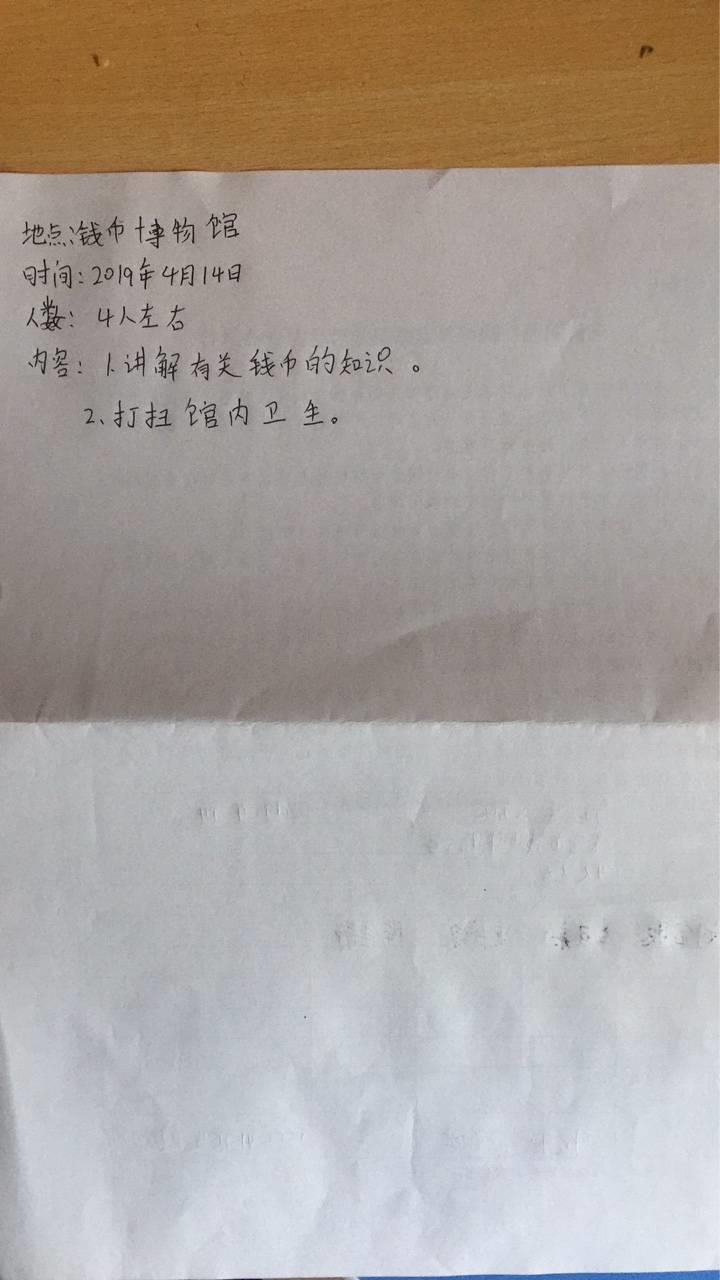 地点:钱币博物馆
时间:2019年4月14日
人数:4人左右
内容:1.讲解有关钱币的知识。
2.打扫馆内卫生。